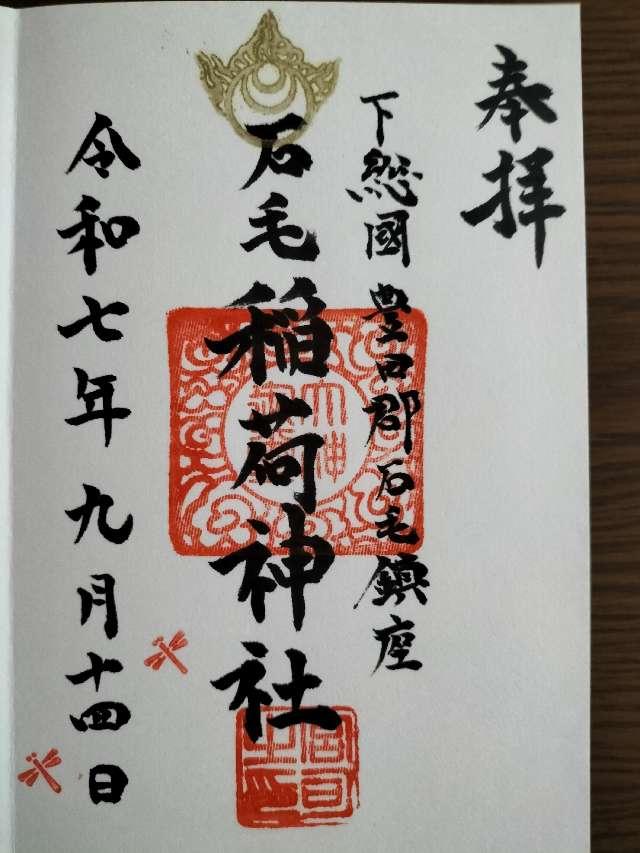 奉拝
下総國豊田郡石毛鎮座
石毛稲荷神社
令和七年九月十四日